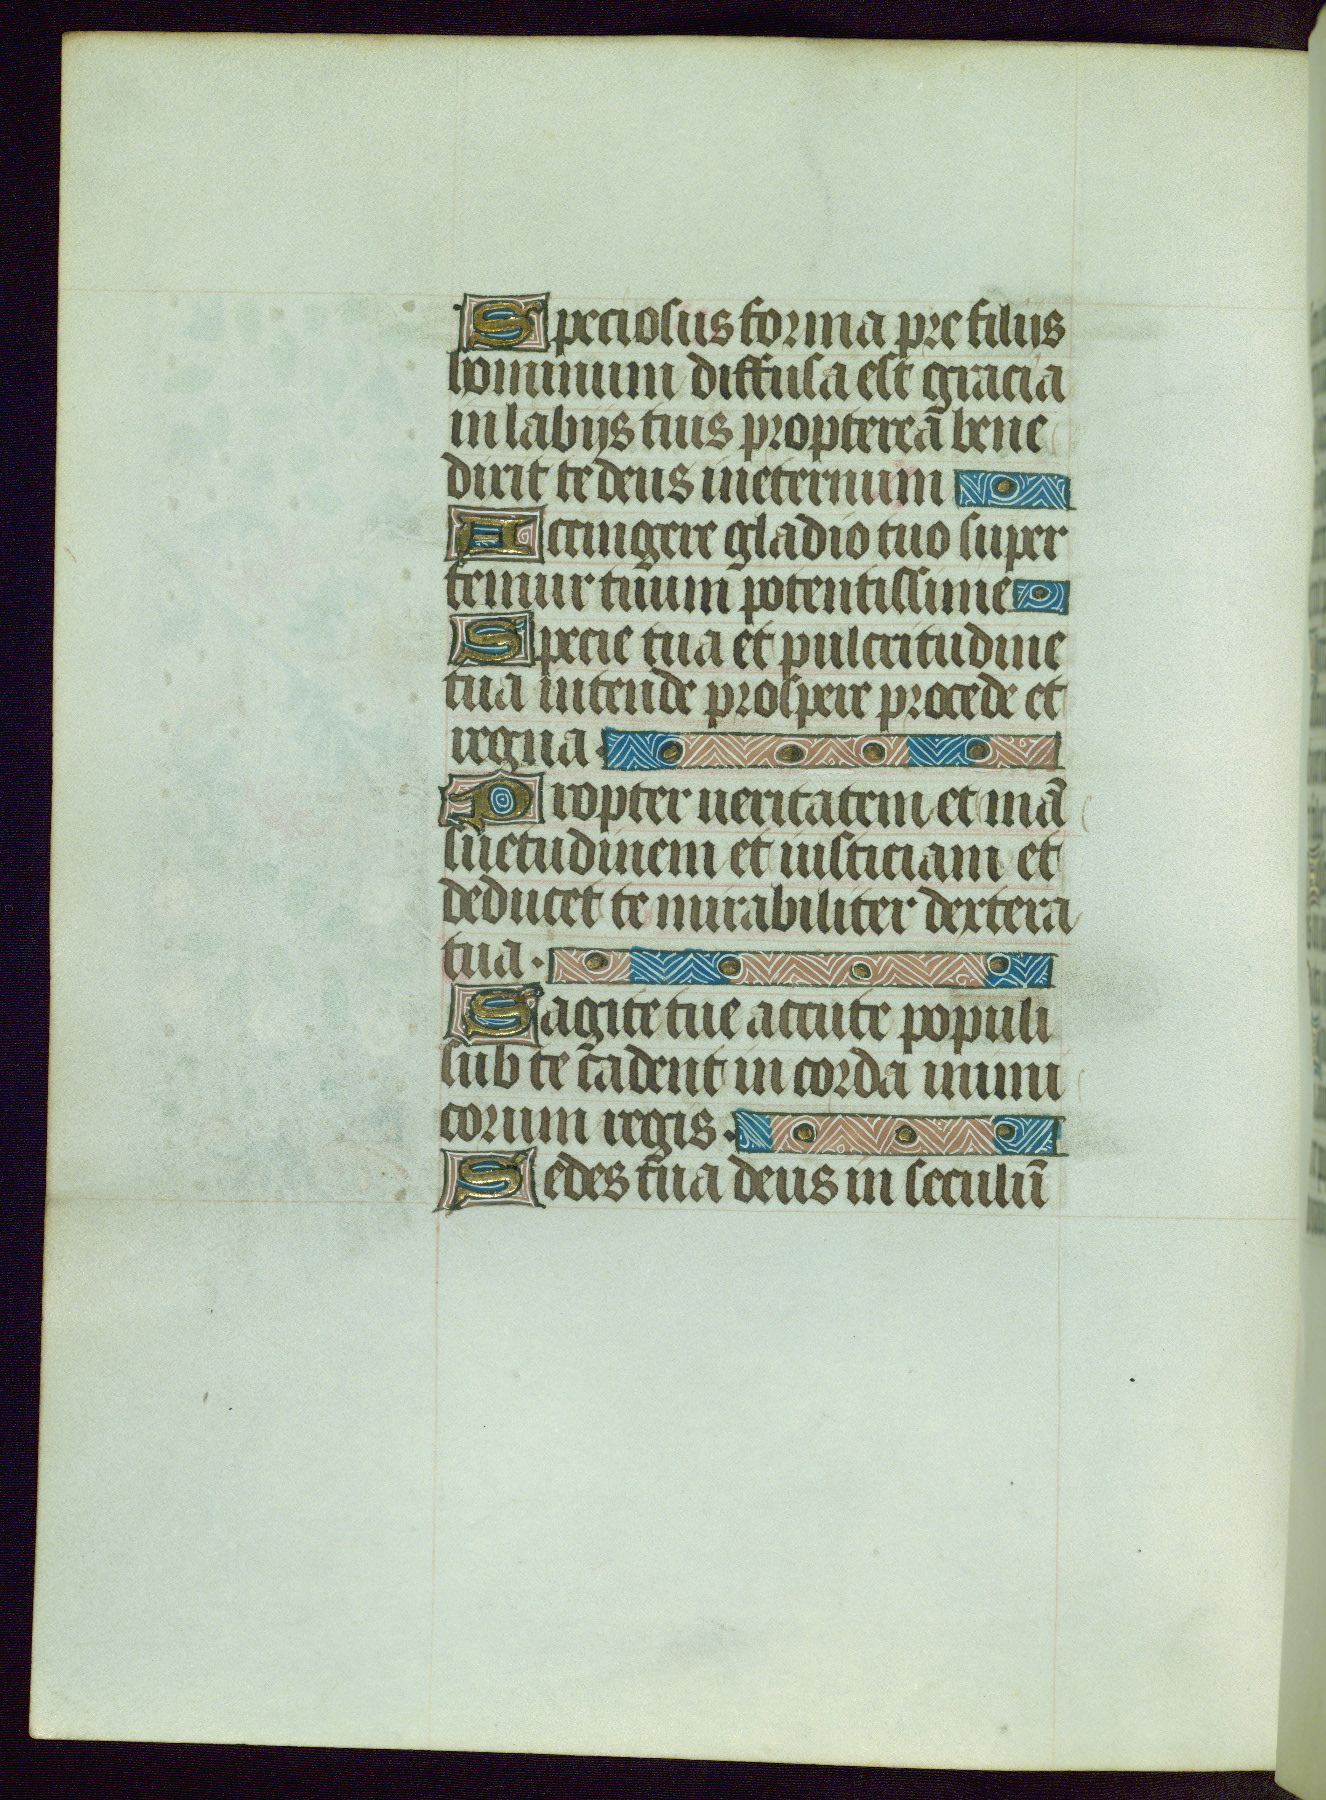 Speciosus forma pre filijs
hominum diffusa est gracia
in labijs tuis proptereā bene
dixit te deus ineternum
Accingere gladio tuo super
femur tuum potentissime
Specie tua et pulcritudine
tua intende prospere procede et
regna.
Propter ueritatem et mā
suetudinem et iusticiam et
deducet te mirabiliter dextera
tua.
Sagite tue accute populi
sub te cadent in corda inimi
corum regis.
Sedes tua deus in seculū